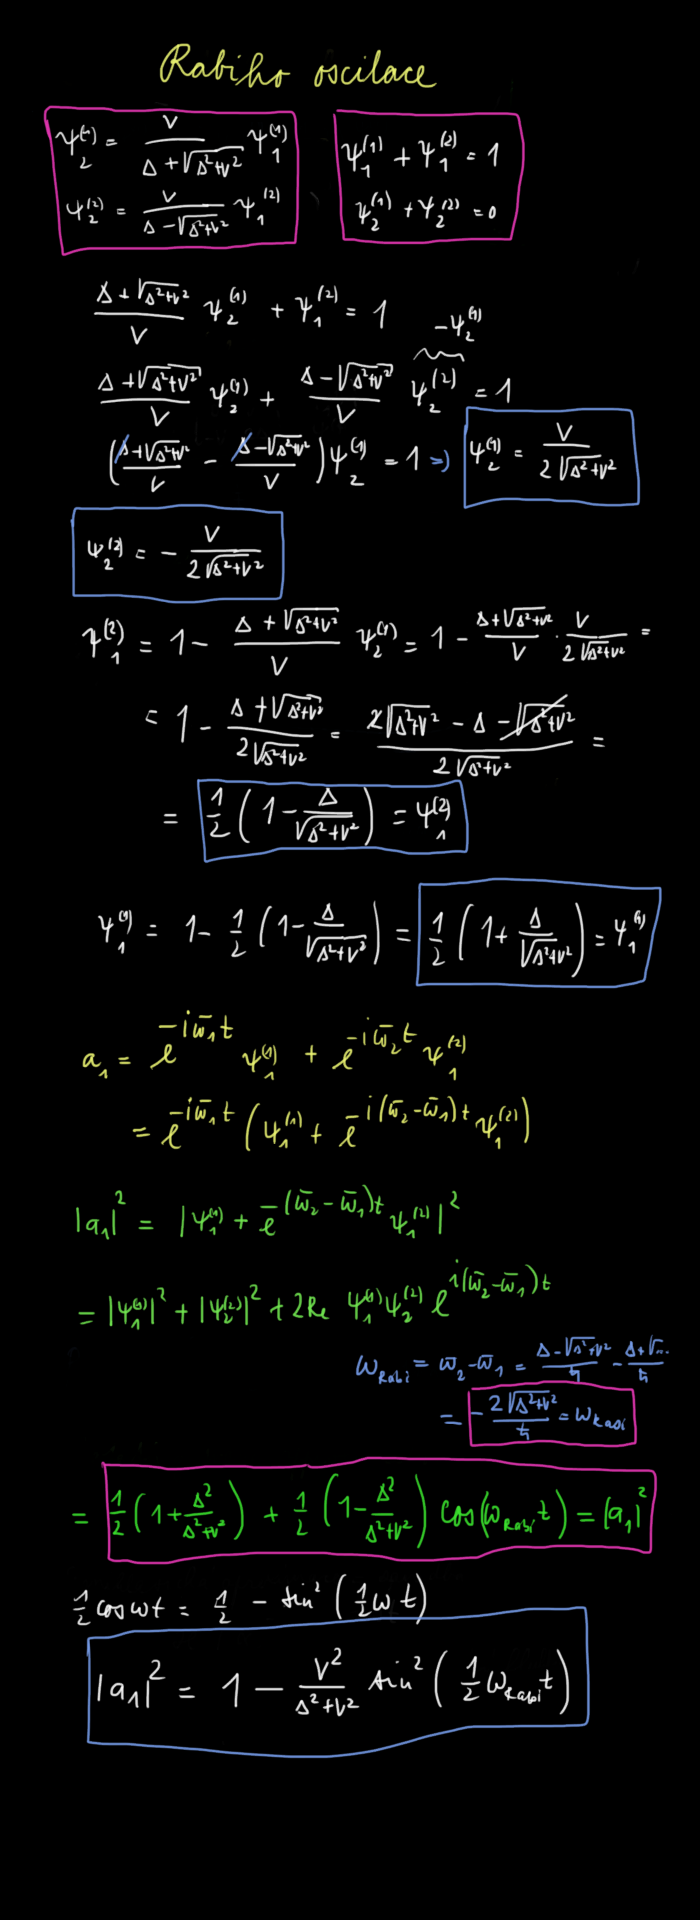 Rabiho oscilace
ψ₂⁽¹⁾ = V / (Δ + √(Δ²+V²)) ψ₁⁽¹⁾
ψ₂⁽²⁾ = V / (Δ − √(Δ²+V²)) ψ₁⁽²⁾
ψ₁⁽¹⁾ + ψ₁⁽²⁾ = 1
ψ₂⁽¹⁾ + ψ₂⁽²⁾ = 0
(Δ + √(Δ²+V²)) / V ψ₂⁽¹⁾ + ψ₁⁽²⁾ = 1
−ψ₂⁽¹⁾
(Δ + √(Δ²+V²)) / V ψ₂⁽¹⁾ + (Δ − √(Δ²+V²)) / V ψ₂⁽²⁾ = 1
((Δ + √(Δ²+V²)) / V − (Δ − √(Δ²+V²)) / V) ψ₂⁽¹⁾ = 1 ⇒ ψ₂⁽¹⁾ = V / (2√(Δ²+V²))
ψ₂⁽²⁾ = − V / (2√(Δ²+V²))
ψ₁⁽²⁾ = 1 − (Δ + √(Δ²+V²)) / V ψ₂⁽¹⁾ = 1 − (Δ + √(Δ²+V²)) / V · V / (2√(Δ²+V²)) =
= 1 − (Δ + √(Δ²+V²)) / (2√(Δ²+V²)) = (2√(Δ²+V²) − Δ − √(Δ²+V²)) / (2√(Δ²+V²)) =
= 1/2 (1 − Δ / √(Δ²+V²)) = ψ₁⁽²⁾
ψ₁⁽¹⁾ = 1 − 1/2 (1 − Δ / √(Δ²+V²)) = 1/2 (1 + Δ / √(Δ²+V²)) = ψ₁⁽¹⁾
a₁ = e^(−iω̄₁t) ψ₁⁽¹⁾ + e^(−iω̄₂t) ψ₁⁽²⁾
= e^(−iω̄₁t) (ψ₁⁽¹⁾ + e^(−i(ω̄₂−ω̄₁)t) ψ₁⁽²⁾)
|a₁|² = |ψ₁⁽¹⁾ + e^(−(ω̄₂−ω̄₁)t) ψ₁⁽²⁾|²
= |ψ₁⁽¹⁾|² + |ψ₂⁽²⁾|² + 2Re ψ₁⁽¹⁾ψ₂⁽²⁾ e^(i(ω̄₂−ω̄₁)t)
ω_Rabi = ω̄₂ − ω̄₁ = (Δ − √(Δ²+V²)) / ħ − (Δ + √...) / ħ
= − 2√(Δ²+V²) / ħ = ω_Rabi
= 1/2 (1 + Δ² / (Δ²+V²)) + 1/2 (1 − Δ² / (Δ²+V²)) cos(ω_Rabi t) = |a₁|²
1/2 cos ωt = 1/2 − sin² (1/2 ωt)
|a₁|² = 1 − V² / (Δ²+V²) sin² (1/2 ω_Rabi t)